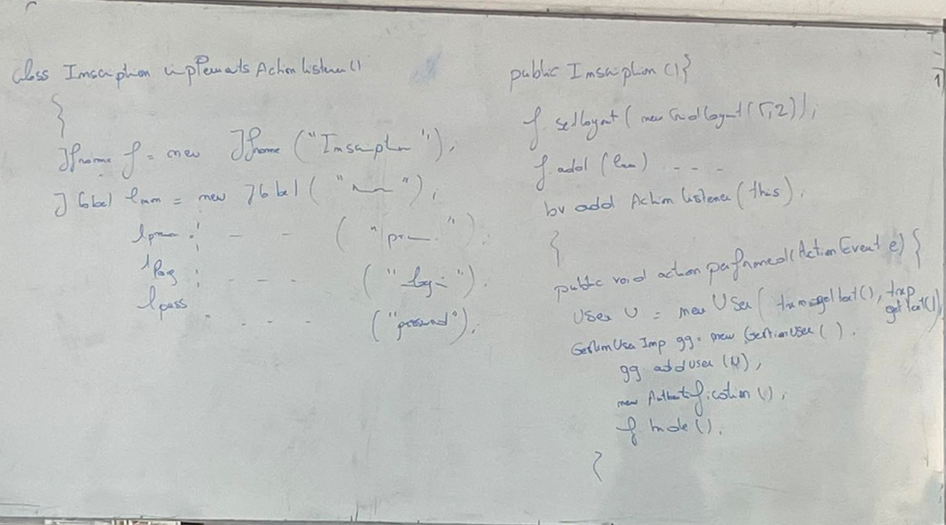 class Inscription implements ActionListener()
{
Jframe f = new Jframe ("Inscription");
Jlabel lnom = new Jlabel ("nom");
lpren : - - ("pren");
llog : - - - ("login");
lpass - - - - ("password");
public Inscription () {
f. setlayout ( new GridLayout (5,2));
f. add (lnom) - - - -
bv add Action listener (this);
}
public void action performed (Action Event e) {
User U = new User ( txnom getText(), txp getText()
GestionUser Imp gg = new GestionUser ( ).
gg addUser (U);
new Authentification ();
f. hide ();
}
1